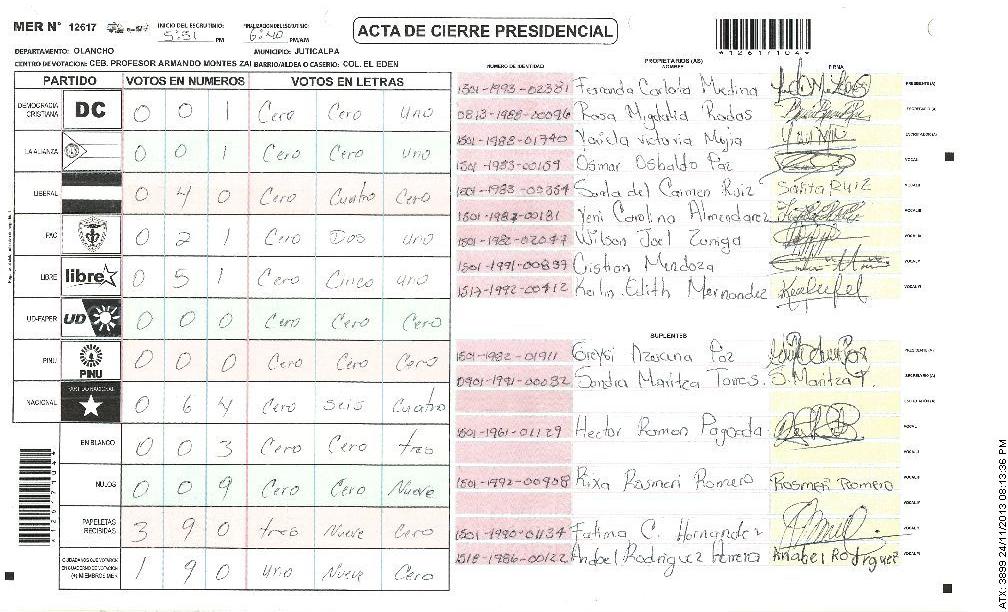 MER N° 12617
INICIO DEL ESCRUTINIO:
5:51 PM
6:40 PM/AM
ACTA DE CIERRE PRESIDENCIAL
*12617104*
DEPARTAMENTO: OLANCHO
MUNICIPIO: JUTICALPA
CENTRO DE VOTACION: CEB. PROFESOR ARMANDO MONTES ZAI BARRIO/ALDEA O CASERIO: COL. EL EDEN
PARTIDO VOTOS EN NUMEROS VOTOS EN LETRAS
DEMOCRACIA CRISTIANA DC 0 0 1 Cero Cero Uno
LA ALIANZA 0 0 1 Cero Cero uno
LIBERAL 0 4 0 Cero Cuatro Cero
PAC 0 2 1 Cero Dos uno
LIBRE libre 0 5 1 Cero Cinco uno
UD-FAPER UD 0 0 0 Cero Cero Cero
PINU PINU 0 0 0 Cero Cero Cero
NACIONAL PARTIDO NACIONAL 0 6 4 Cero seis Cuatro
EN BLANCO 0 0 3 Cero Cero tres
NULOS 0 0 9 Cero Cero Nueve
PAPELETAS RECIBIDAS 3 9 0 tres Nueve Cero
1 9 0 uno Nueve Cero
PROPIETARIOS (AS)
NUMERO DE IDENTIDAD NOMBRE FIRMA
1501-1993-02381 Fernanda Carolina Medina PRESIDENTE(A)
0813-1988-00096 Rosa Migdalia Rodas SECRETARIO(A)
1501-1988-01740 Yariela victoria Mejia ESCRUTADOR(A)
1501-1983-00159 Osmar Osbaldo Paz VOCAL I
1501-1983-00364 Santa del Carmen Ruiz Santa Ruiz VOCAL II
1501-1987-00181 Yeni Carolina Almendarez VOCAL III
1501-1982-02047 Wilson Joel Zuniga
1501-1991-00839 Cristian Mendoza VOCAL V
1517-1992-00412 Keilin Edith Mernandez VOCAL VI
SUPLENTES
1501-1982-01911 Greysi Azucena Paz PRESIDENTE(A)
0901-1991-00032 Sandra Maritza Torres. S. Maritza T. SECRETARIO(A)
ESCRUTADOR(A)
1501-1961-01129 Hector Ramon Pagoada VOCAL I
1501-1992-00908 Rixa Rosmeri Romero Rosmeri Romero
1501-1990-01134 Fatima C. Hernandez VOCAL V
1518-1986-00122 Anabel Rodriguez Herrera Anabel Rodriguez VOCAL VI
ATX: 3899 24/11/2013 08:13:36 PM